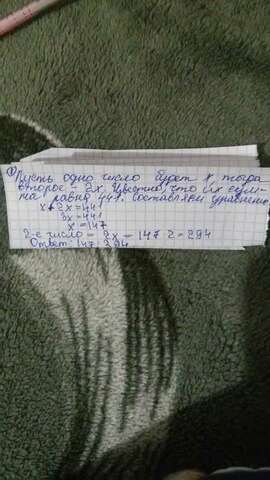 ① Пусть одно число будет x, тогда
второе - 2x. Известно, что их сум-
ма равна 441. Составляем уравнение
x+2x=441
3x=441
x=147
2-е число - 2x = 147·2=294
Ответ: 147; 294